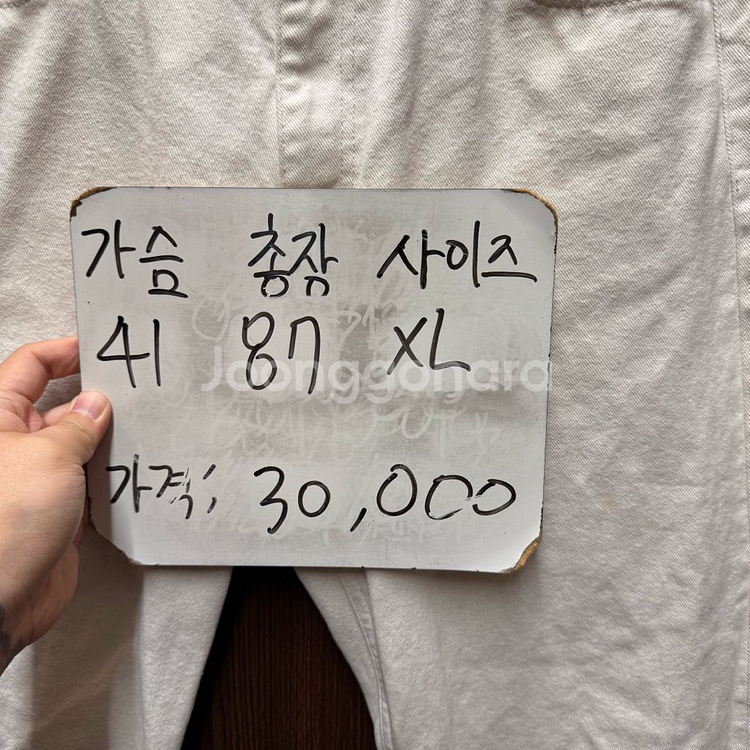 가슴 총장 사이즈
41 87 XL
Joonggonara
가격: 30,000